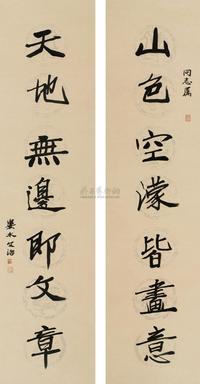 同志属
山色空濛皆畫意
天地無邊即文章